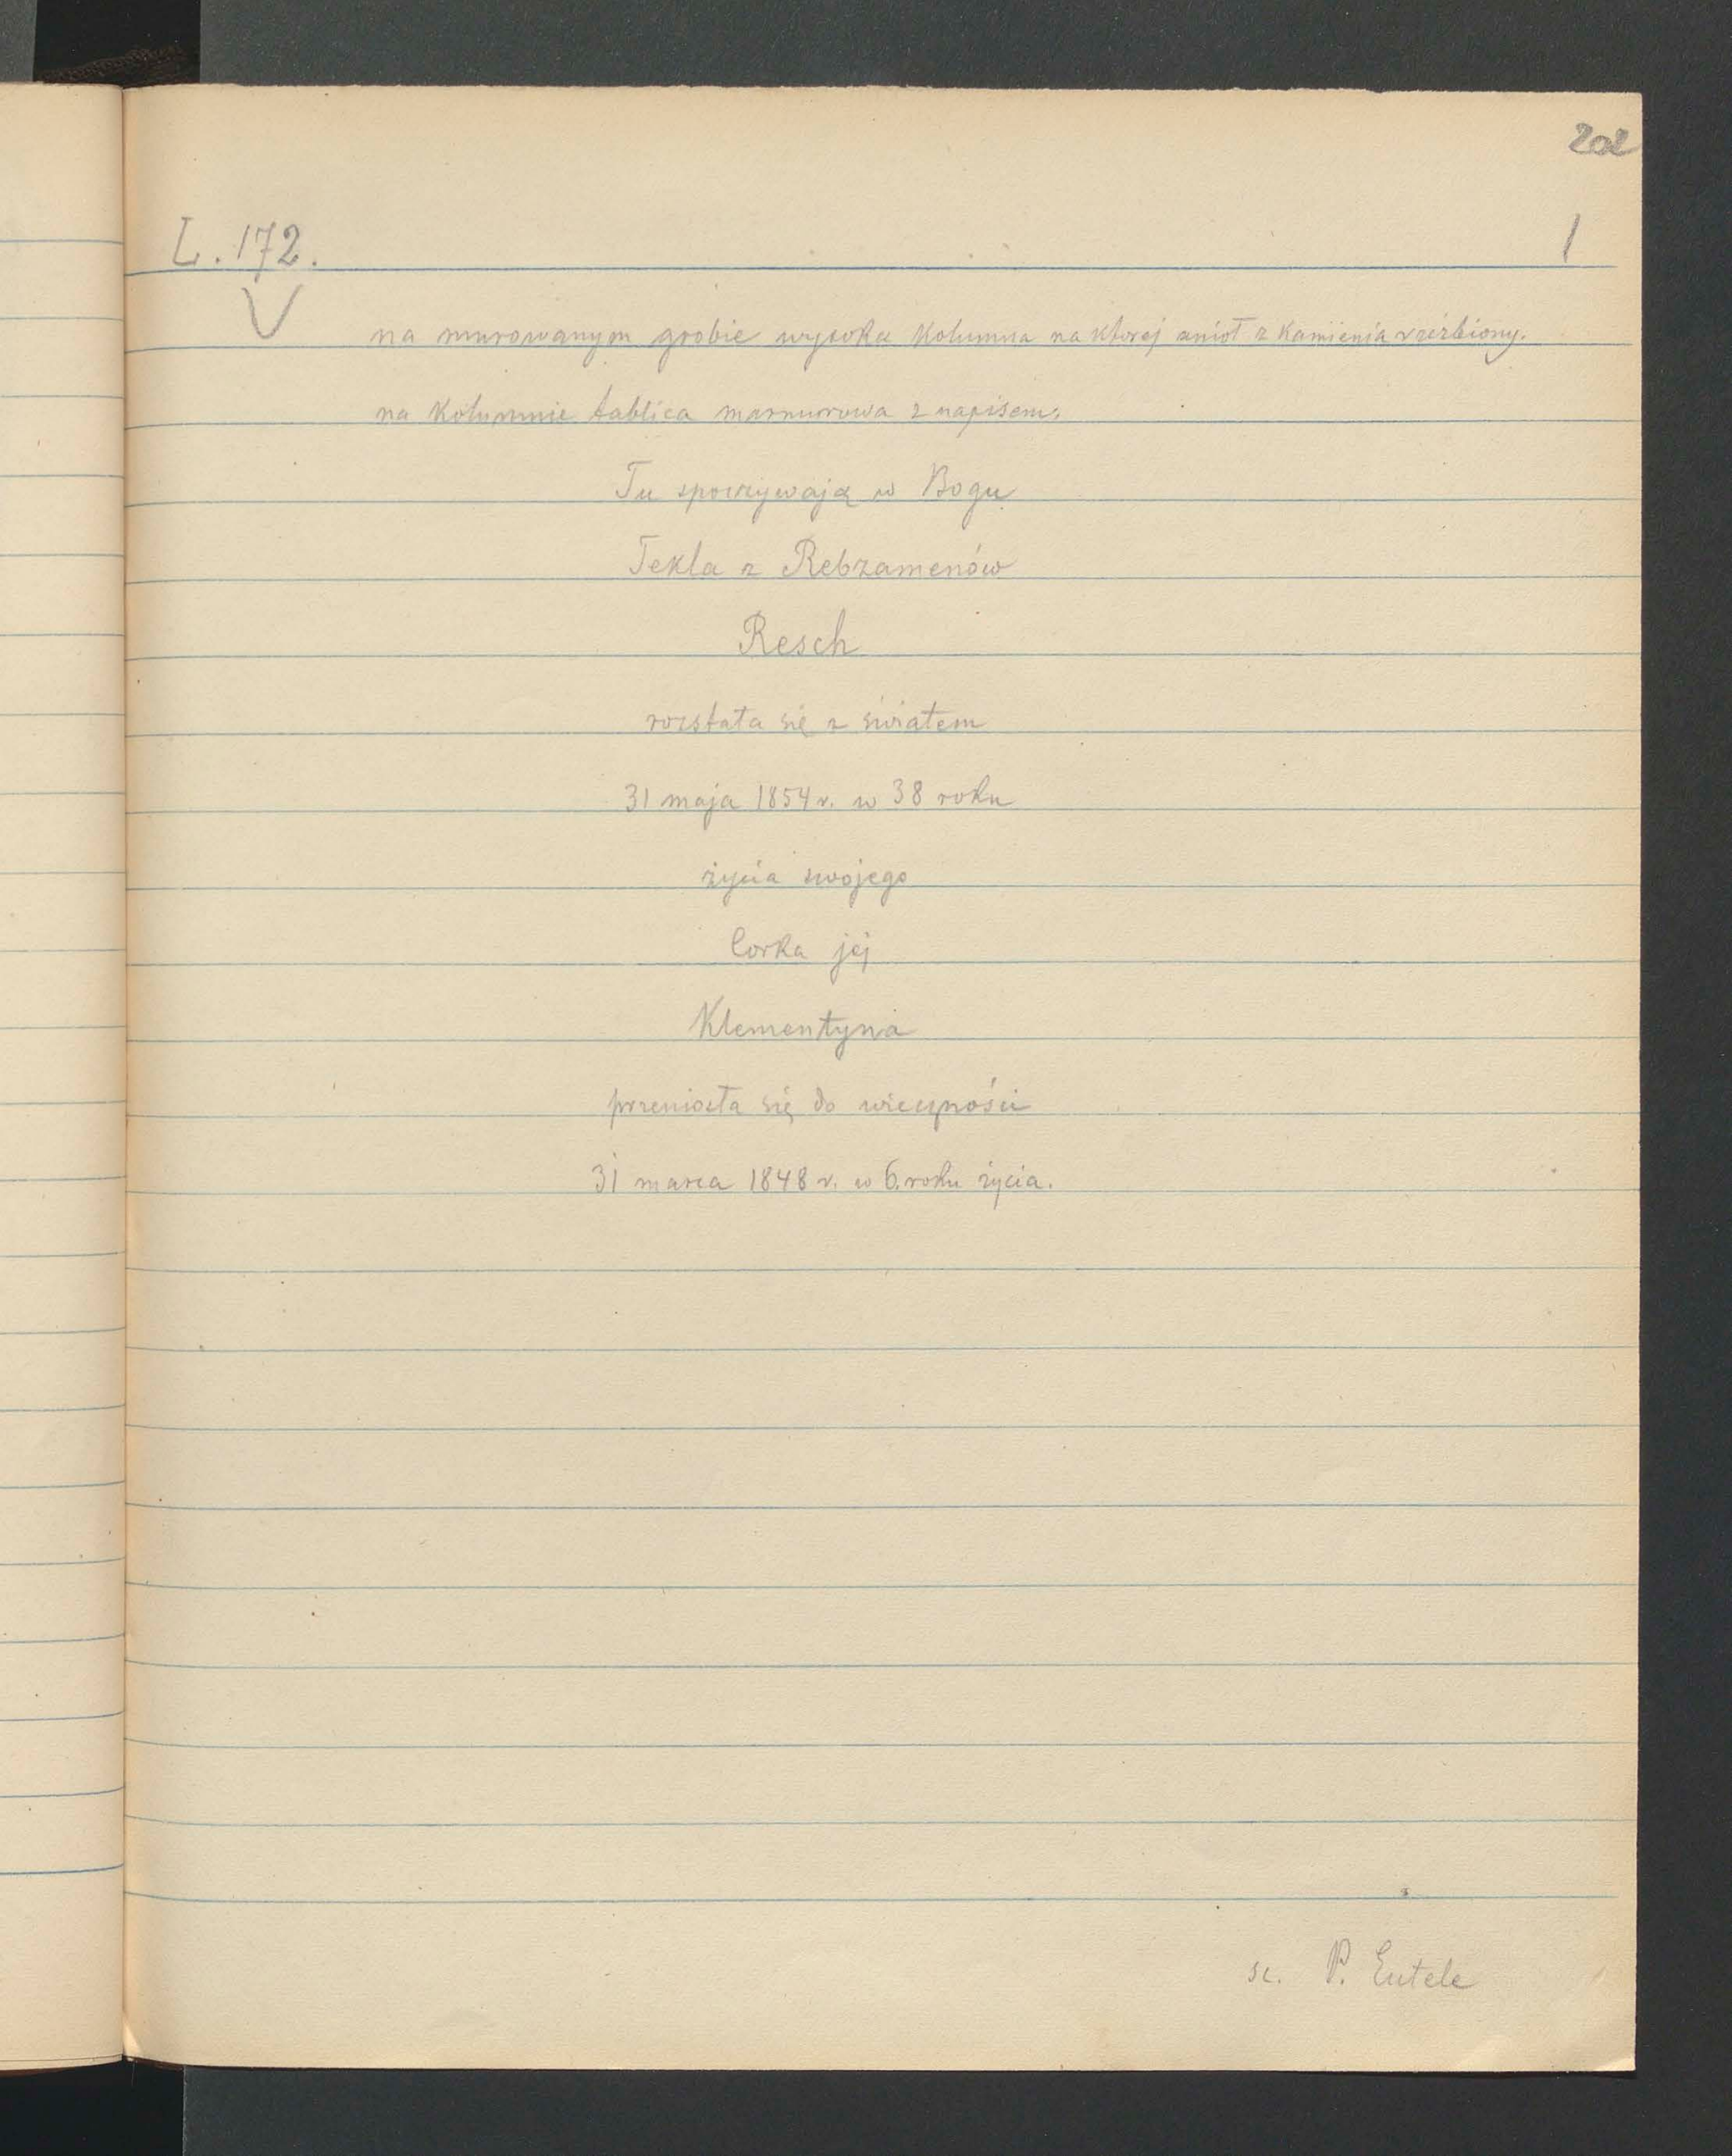 202
L. 172. 1
V
na murowanym grobie wysoka kolumna na ktorej anioł z kamienia rzeźbiony.
na kolumnie tablica marmurowa z napisem:
Tu spoczywają w Bogu
Tekla z Rebzamenów
Resch
rozstała się z światem
31 maja 1854 r. w 38 roku
życia swojego
Corka jej
Klementyna
przeniosła się do wieczności
31 marca 1848 r. w 6. roku życia.
sc. P. Eutele